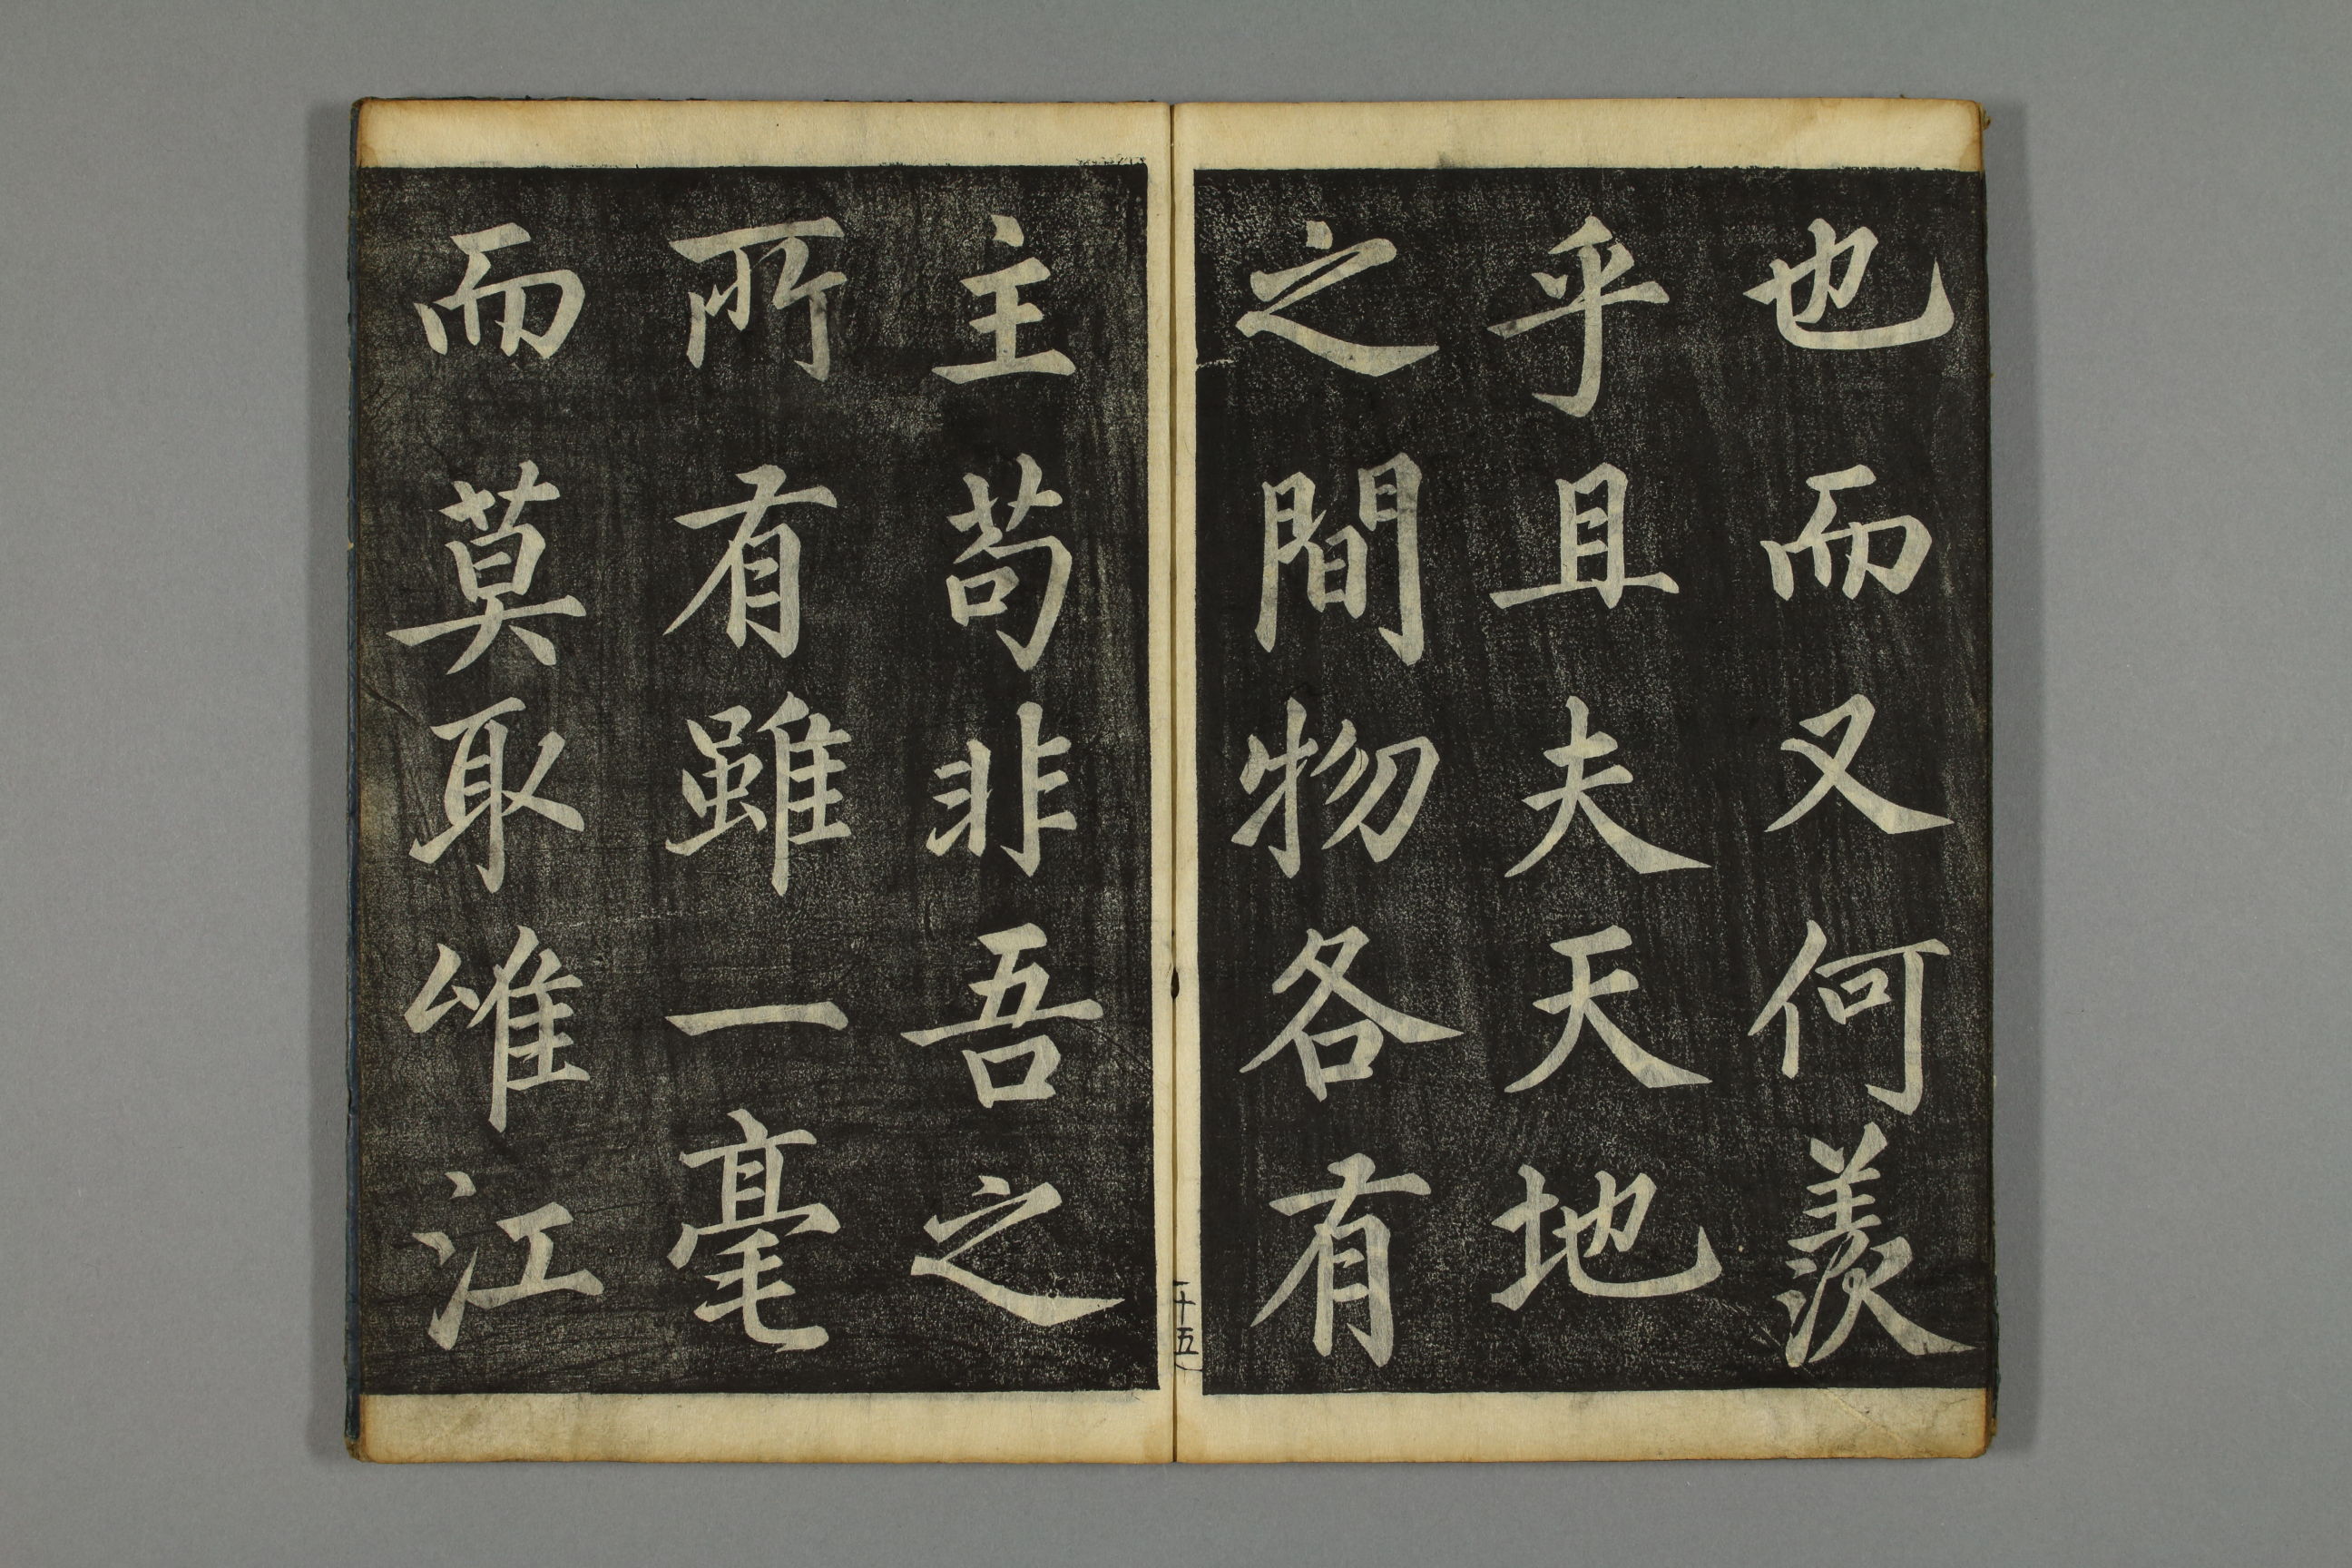 也而又何羨
乎且夫天地
之間物各有
十五
主苟非吾之
所有雖一毫
而莫取唯江